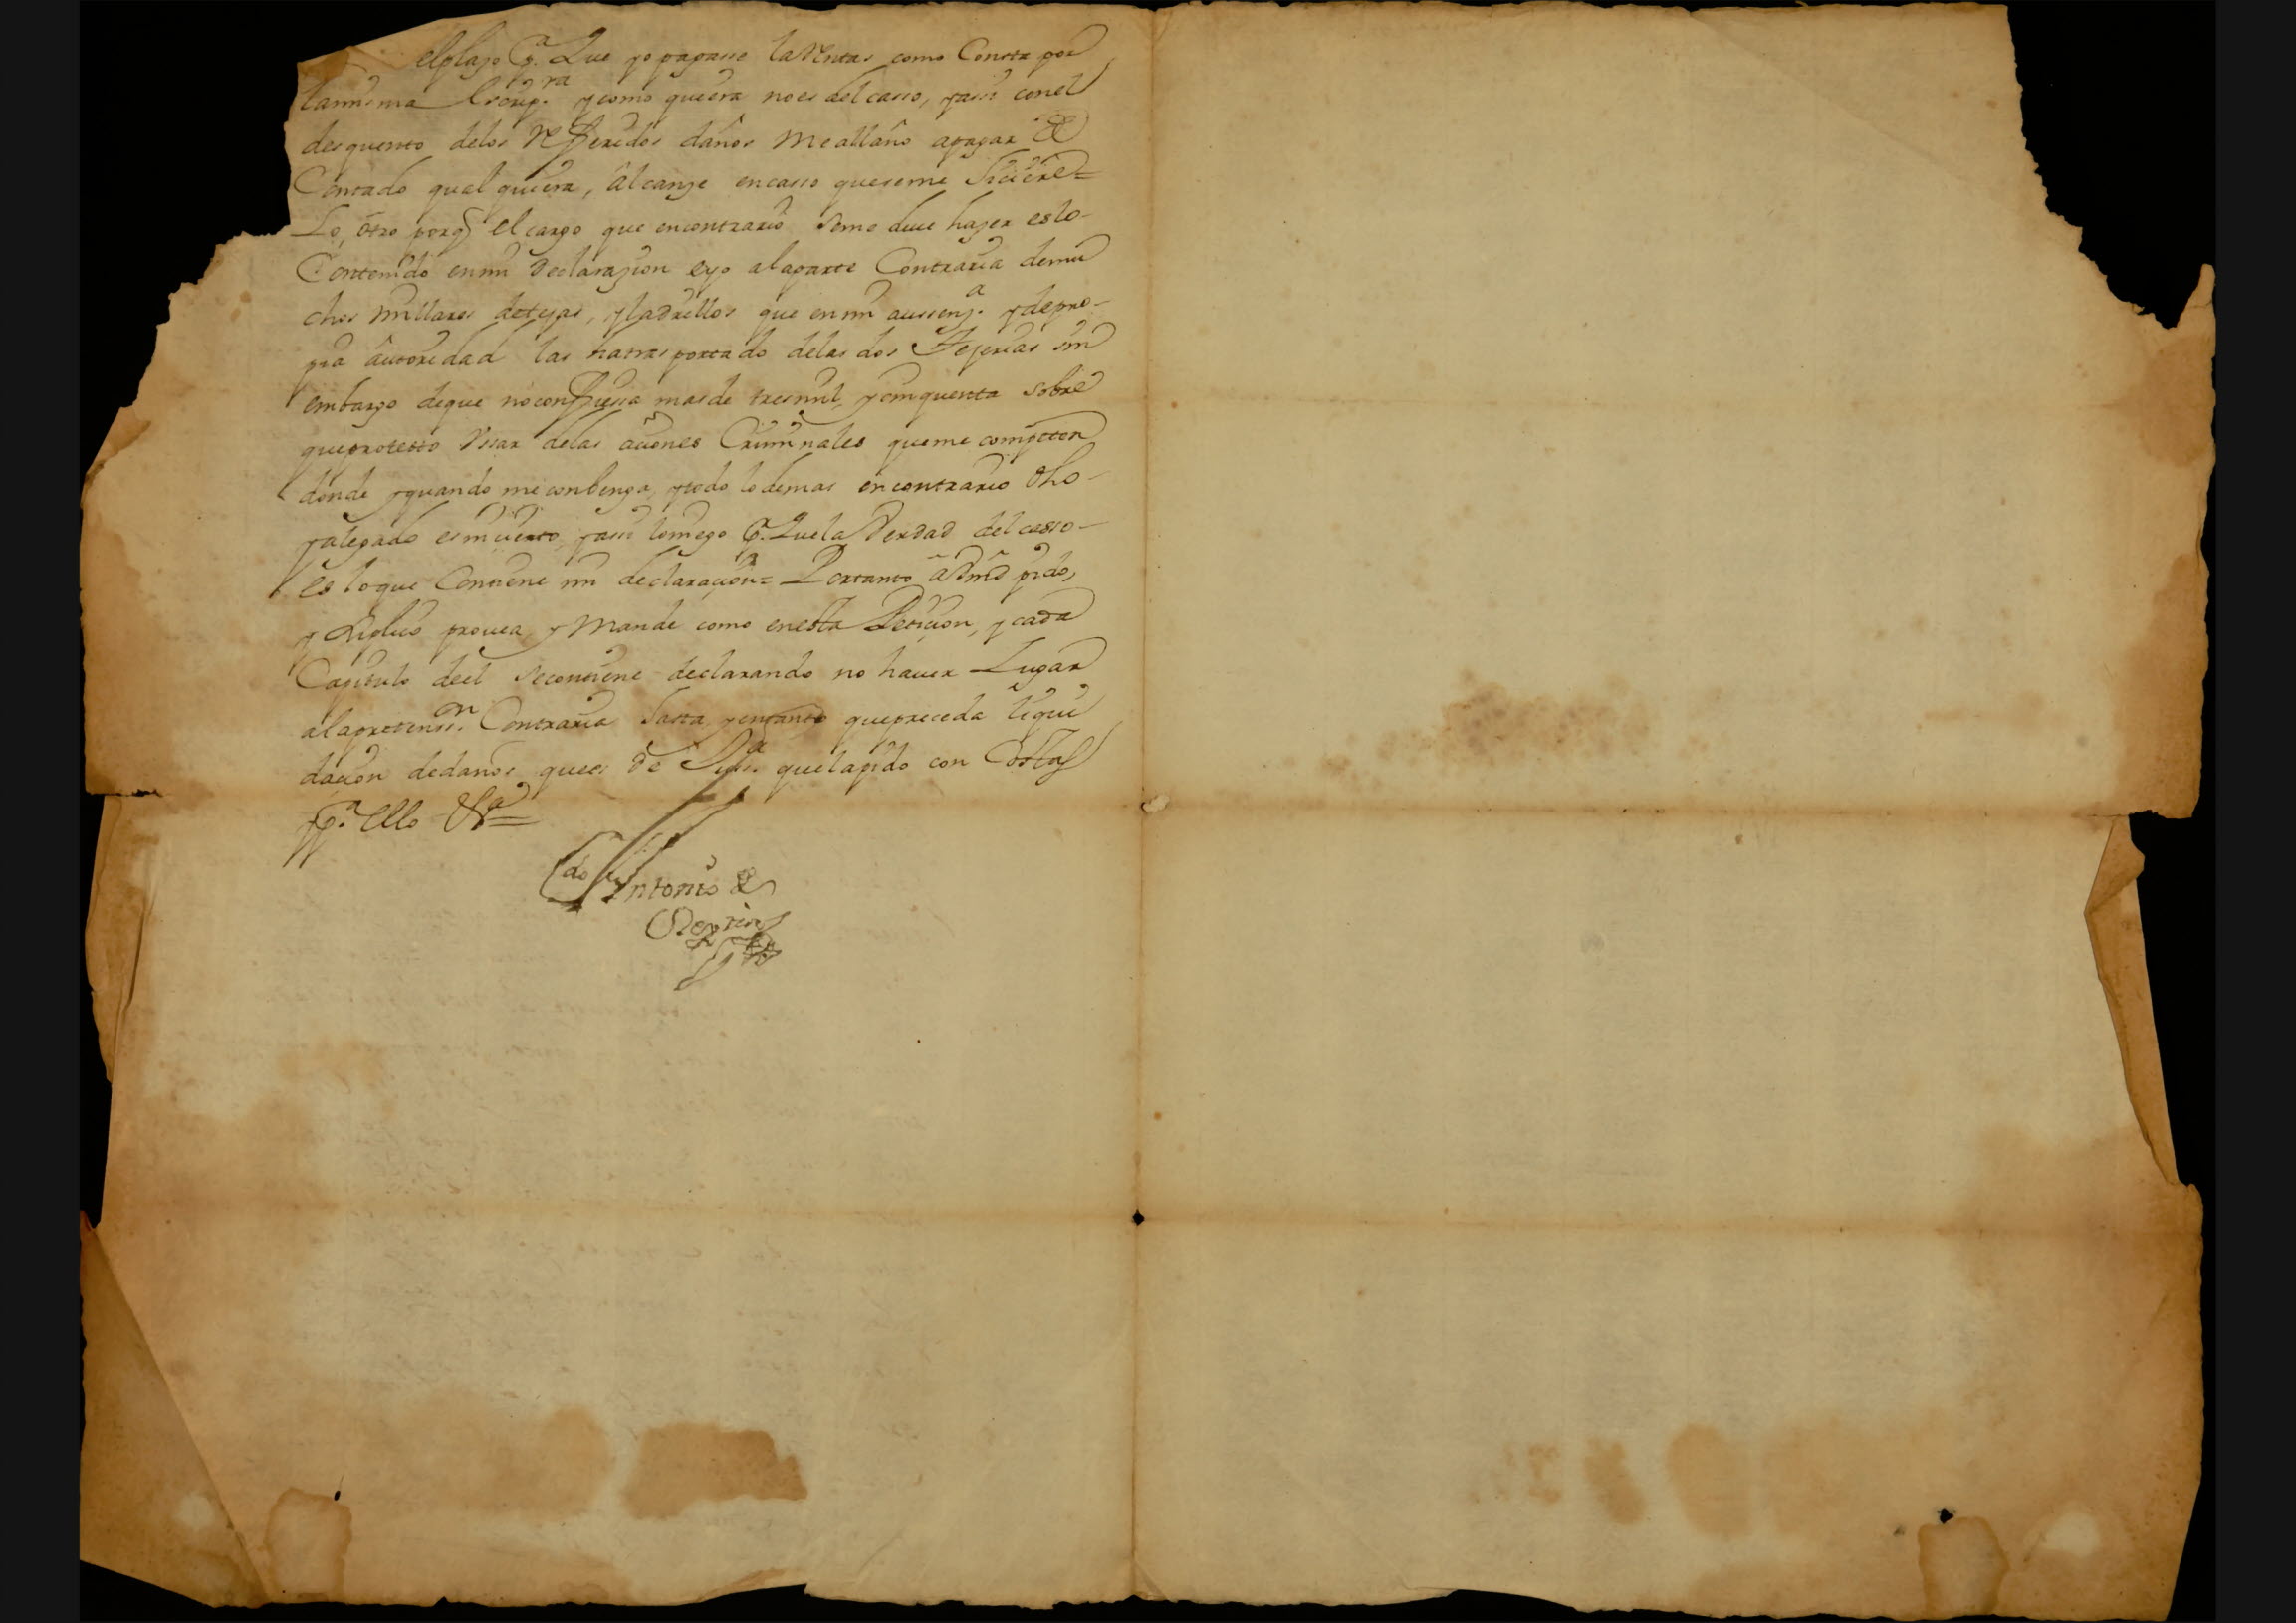 el plazo p.ª Que yo pagasse la Renta como Consta por
la misma Escrip.ra y como quiera no es del casso, y assi con el
desquento de los Referidos daños me allano a pagar de
Contado qualquiera, alcanze en casso que se me hiciere=
Lo, otro porq el cargo que en contrario se me deve hazer es lo
Contenido en mi Declarazion eyo a la parte Contraria de mu
chos millares de tejas, y ladrillos que en mi aussenz.ª y de pro-
pia autoridad las ha trasportado de las dos Tejerias sin
embargo de que no confiessa mas de tres mil, y cinquenta sobre
que protesto Vssar de las aciones Criminales que me competen
donde y quando me conbenga, y todo lo demas en contrario dho
y alegado es incierto, y assi lo niego p.ª Que la Verdad del casso
es lo que Contiene mi declaracion= Por tanto a Vmd pido,
y suplico provea, y Mande como en esta Peticion, y cada
Capitulo de el se contiene declarando no haver Lugar
a la pretenss.on Contraria hasta, y en tanto que preceda liqui
dacion de daños que es de Just.ª que la pido con Costas
y p.ª ello &ª=
Ldo Antonio de